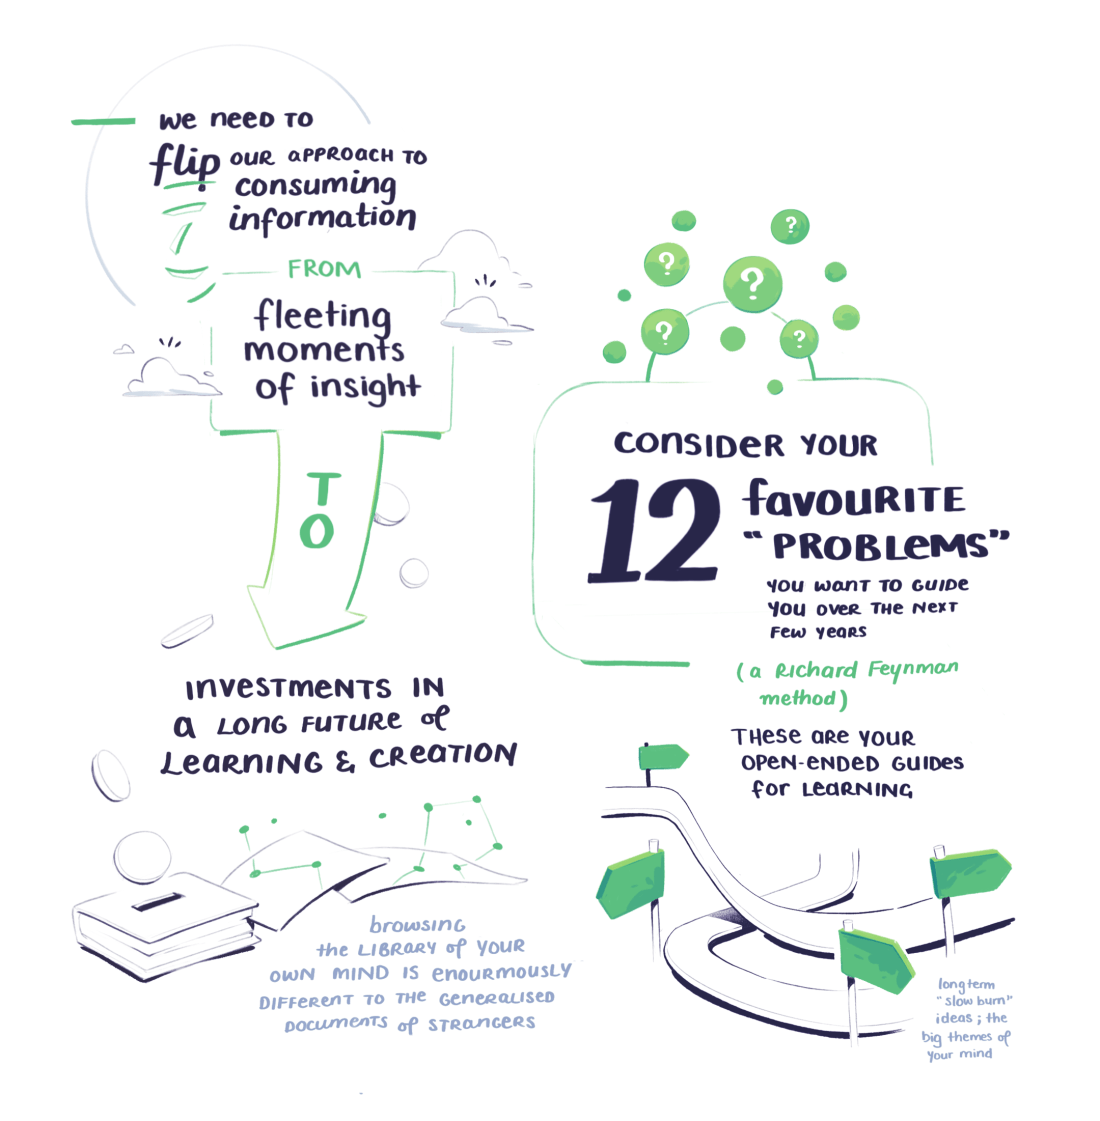 We need to
flip our approach to
consuming
information
FROM
fleeting
moments
of insight
TO
investments in
a long future of
learning & creation
browsing
the library of your
own mind is enourmously
different to the generalised
documents of strangers
?
?
?
?
?
Consider your
12 favourite
"problems"
you want to guide
you over the next
few years
(a Richard Feynman
method)
These are your
open-ended guides
for learning
long term
"slow burn"
ideas ; the
big themes of
your mind